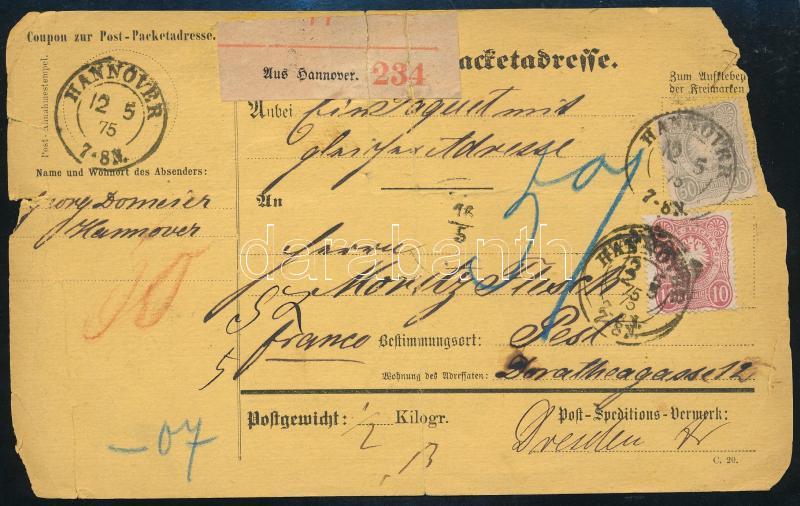 Coupon zur Post-Packetadresse.
Post-Annahmestempel.
HANNOVER
12 5
75
7-8N.
Name und Wohnort des Absenders:
Georg Domeier
Hannover
-07
Aus Hannover. 234
Packetadresse.
Zum Aufkleben
der Freimarken
Anbei Ein Paquet mit
gleicher Adresse
An
Herrn
Moritz
Franco Bestimmungsort: Pest
Wohnung des Adressaten: Dorotheagasse 12
Postgewicht: 1/2 Kilogr.
Post-Speditions-Vermerk:
Dresden
C. 20.
HANNOVER
12 5
75
7-8N.
50
HANNOVER
12 5
75
7-8N.
10
darabanth